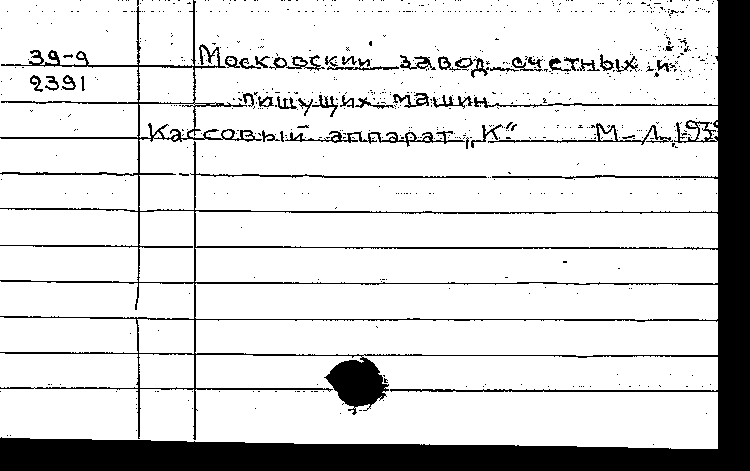 39-9 Московский завод счетных и
2391 пишущих машин
Кассовый аппарат „К“ М-Л, 1939